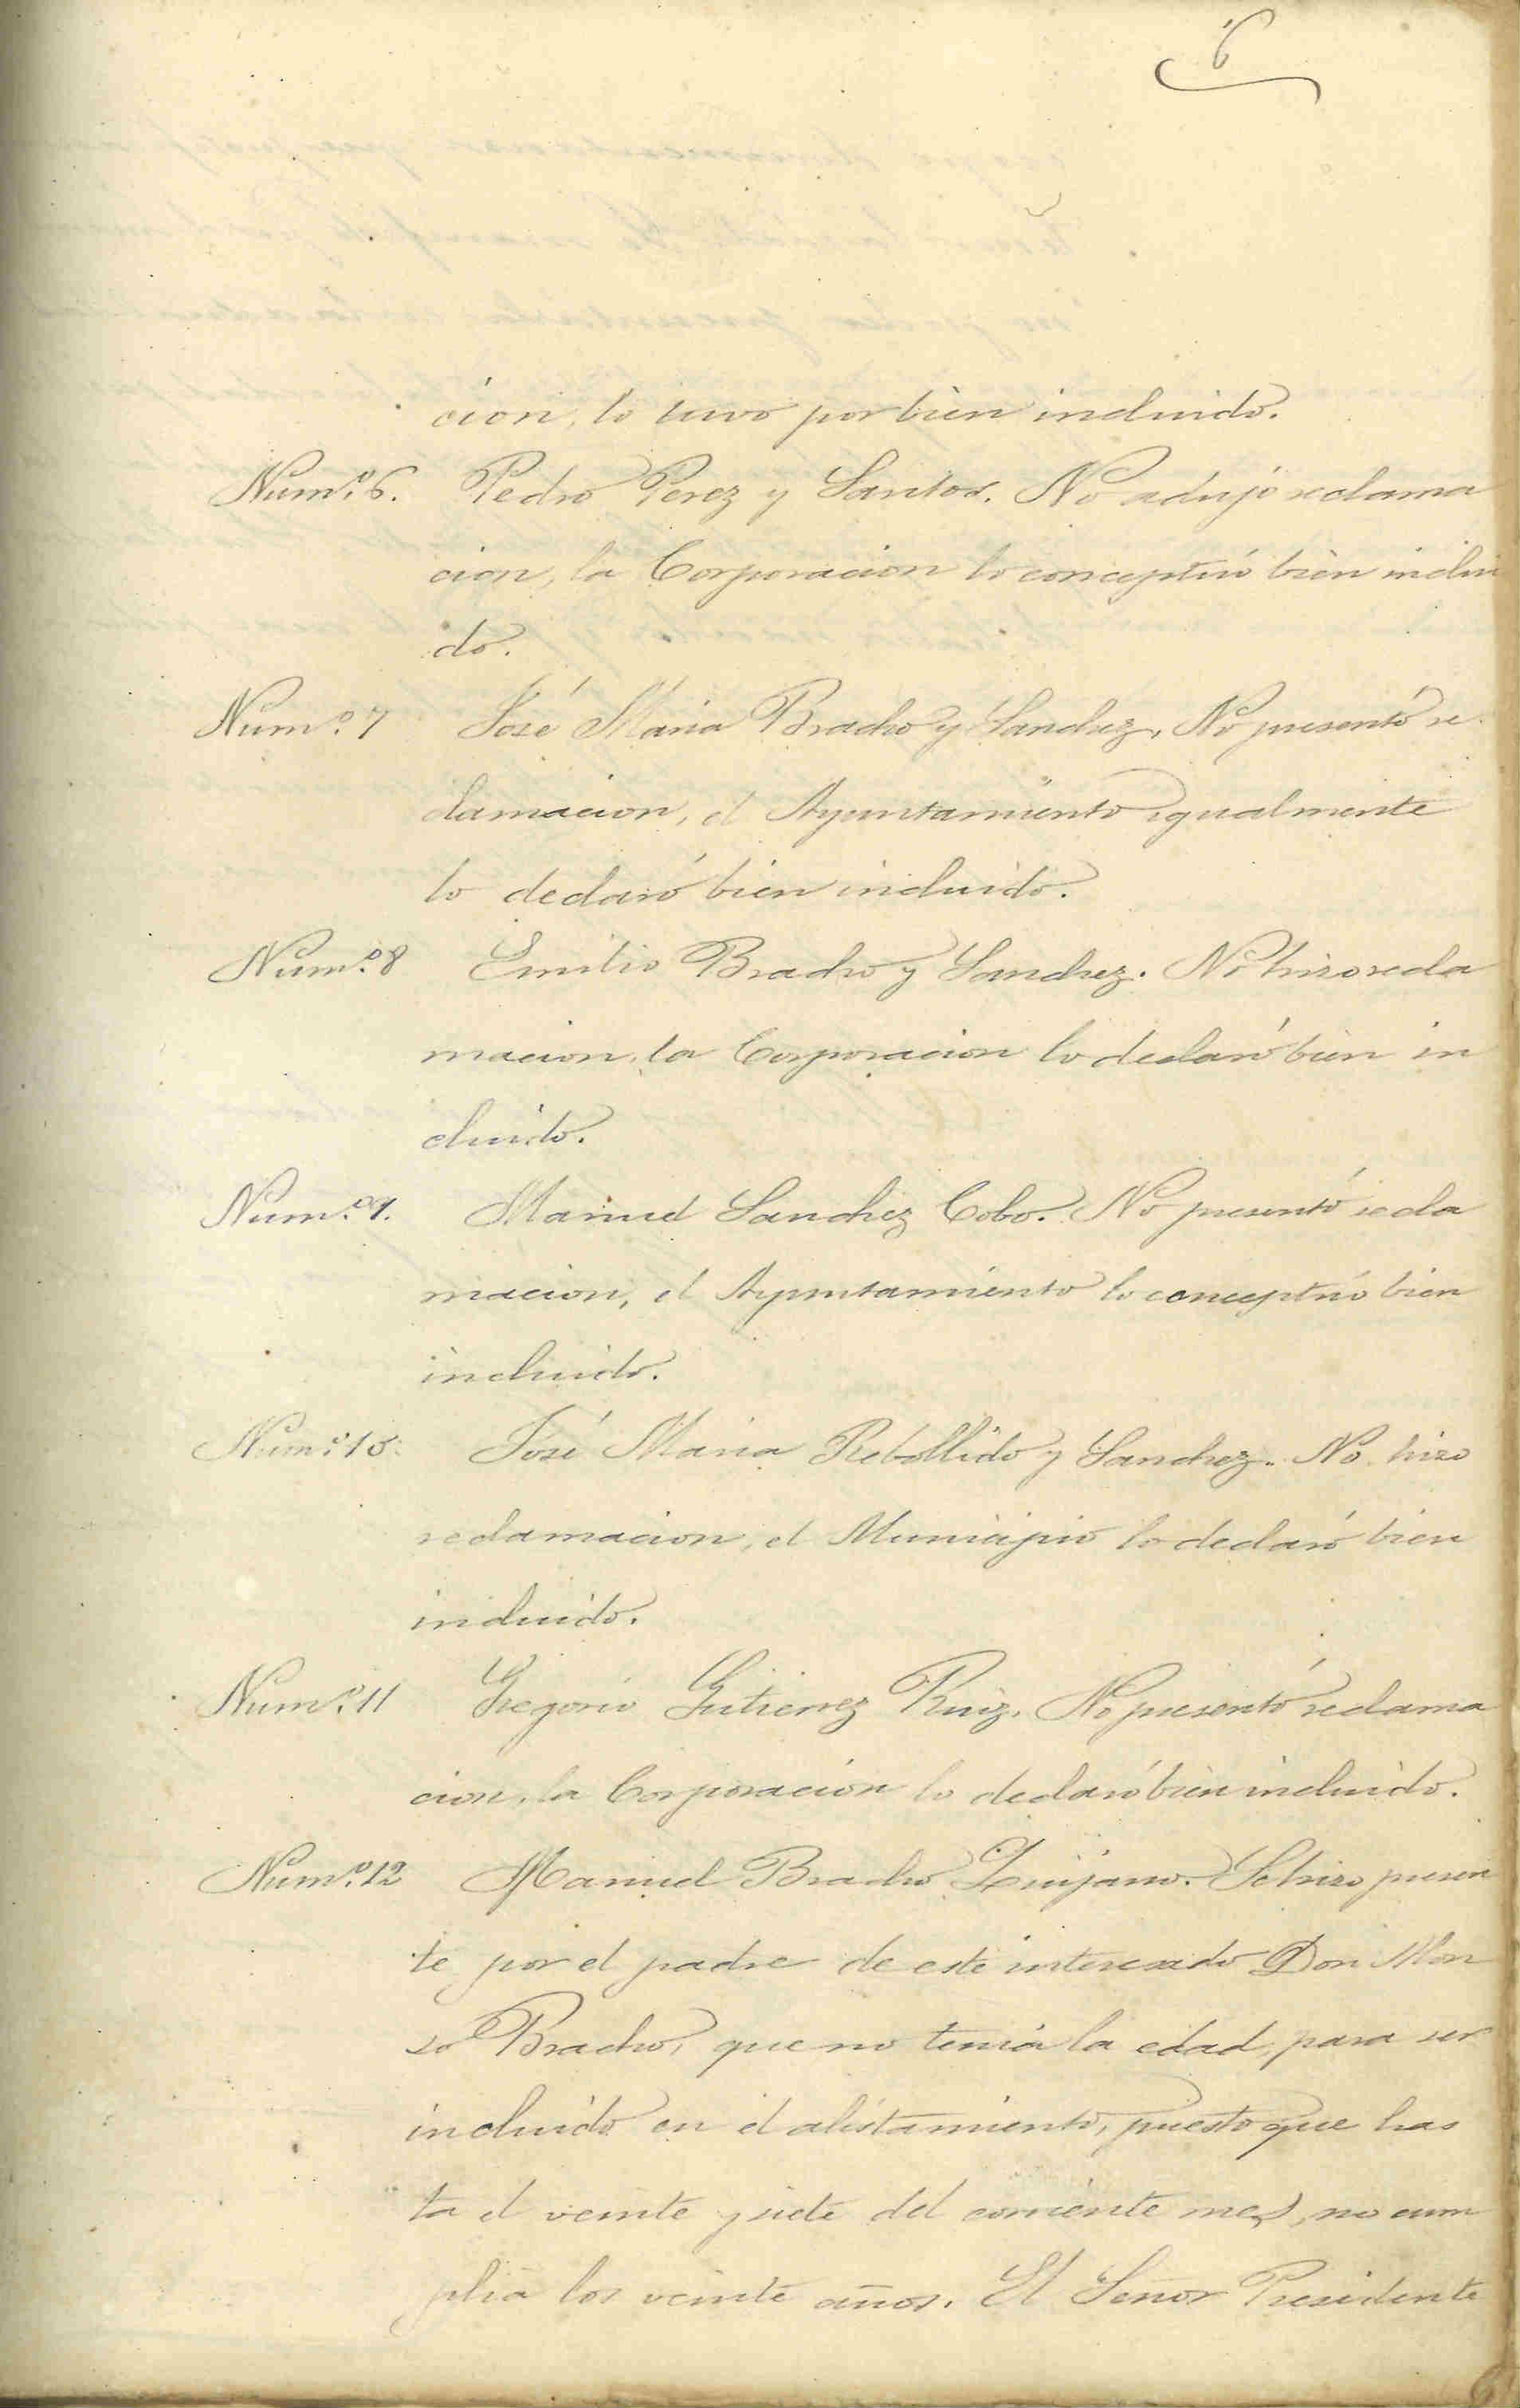 6
cion, lo tuvo por bien incluido.
Num.º 6. Pedro Perez y Santos. No adujó reclama
cion, la Corporacion lo conceptuó bien inclui
do.
Num.º 7 José Maria Bracho y Sanchez, No presentó re
clamacion, el Ayuntamiento igualmente
lo declaró bien incluido.
Num.º 8 Emilio Bracho y Sanchez. No hizo recla
macion, la Corporacion lo declaró bien in
cluido.
Num.º 9. Manuel Sanchez Cobo. No presentó recla
macion, el Ayuntamiento lo conceptuó bien
incluido.
Num.º 10. José Maria Rebollido y Sanchez. No hizo
reclamacion, el Municipio lo declaró bien
incluido.
Num.º 11 Gregorio Gutierrez Ruiz. No presentó reclama
cion, la Corporacion lo declaró bien incluido.
Num.º 12 Manuel Bracho Quijano. Se hizo presen
te por el padre de este interesado Don Alon
so Bracho, que no tenia la edad, para ser
incluido en el alistamiento, puesto que has
ta el veinte y siete del corriente mes, no cum
plia los veinte años. El Señor Presidente